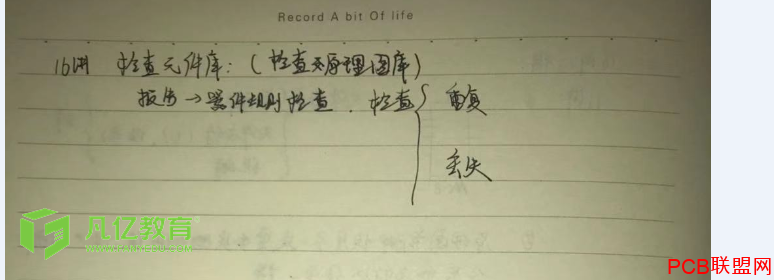 Record A bit Of life
16讲 检查元件库:(检查原理图库)
报告→器件规则检查.检查{重复
丢失
凡亿教育
PCB联盟网